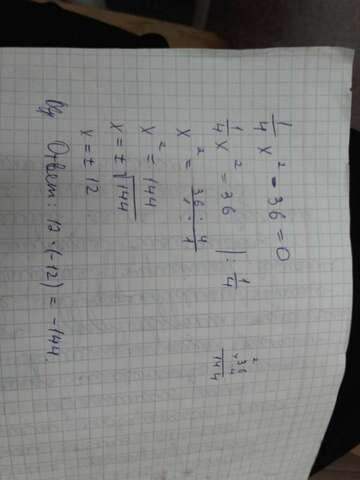 1/4 x² - 36 = 0
1/4 x² = 36 | : 1/4
x² = 36 · 4 / 1 · 1
x² = 144
x = ± √144
x = ± 12
Ответ: 12 · (-12) = -144.
2
36
× 4
144